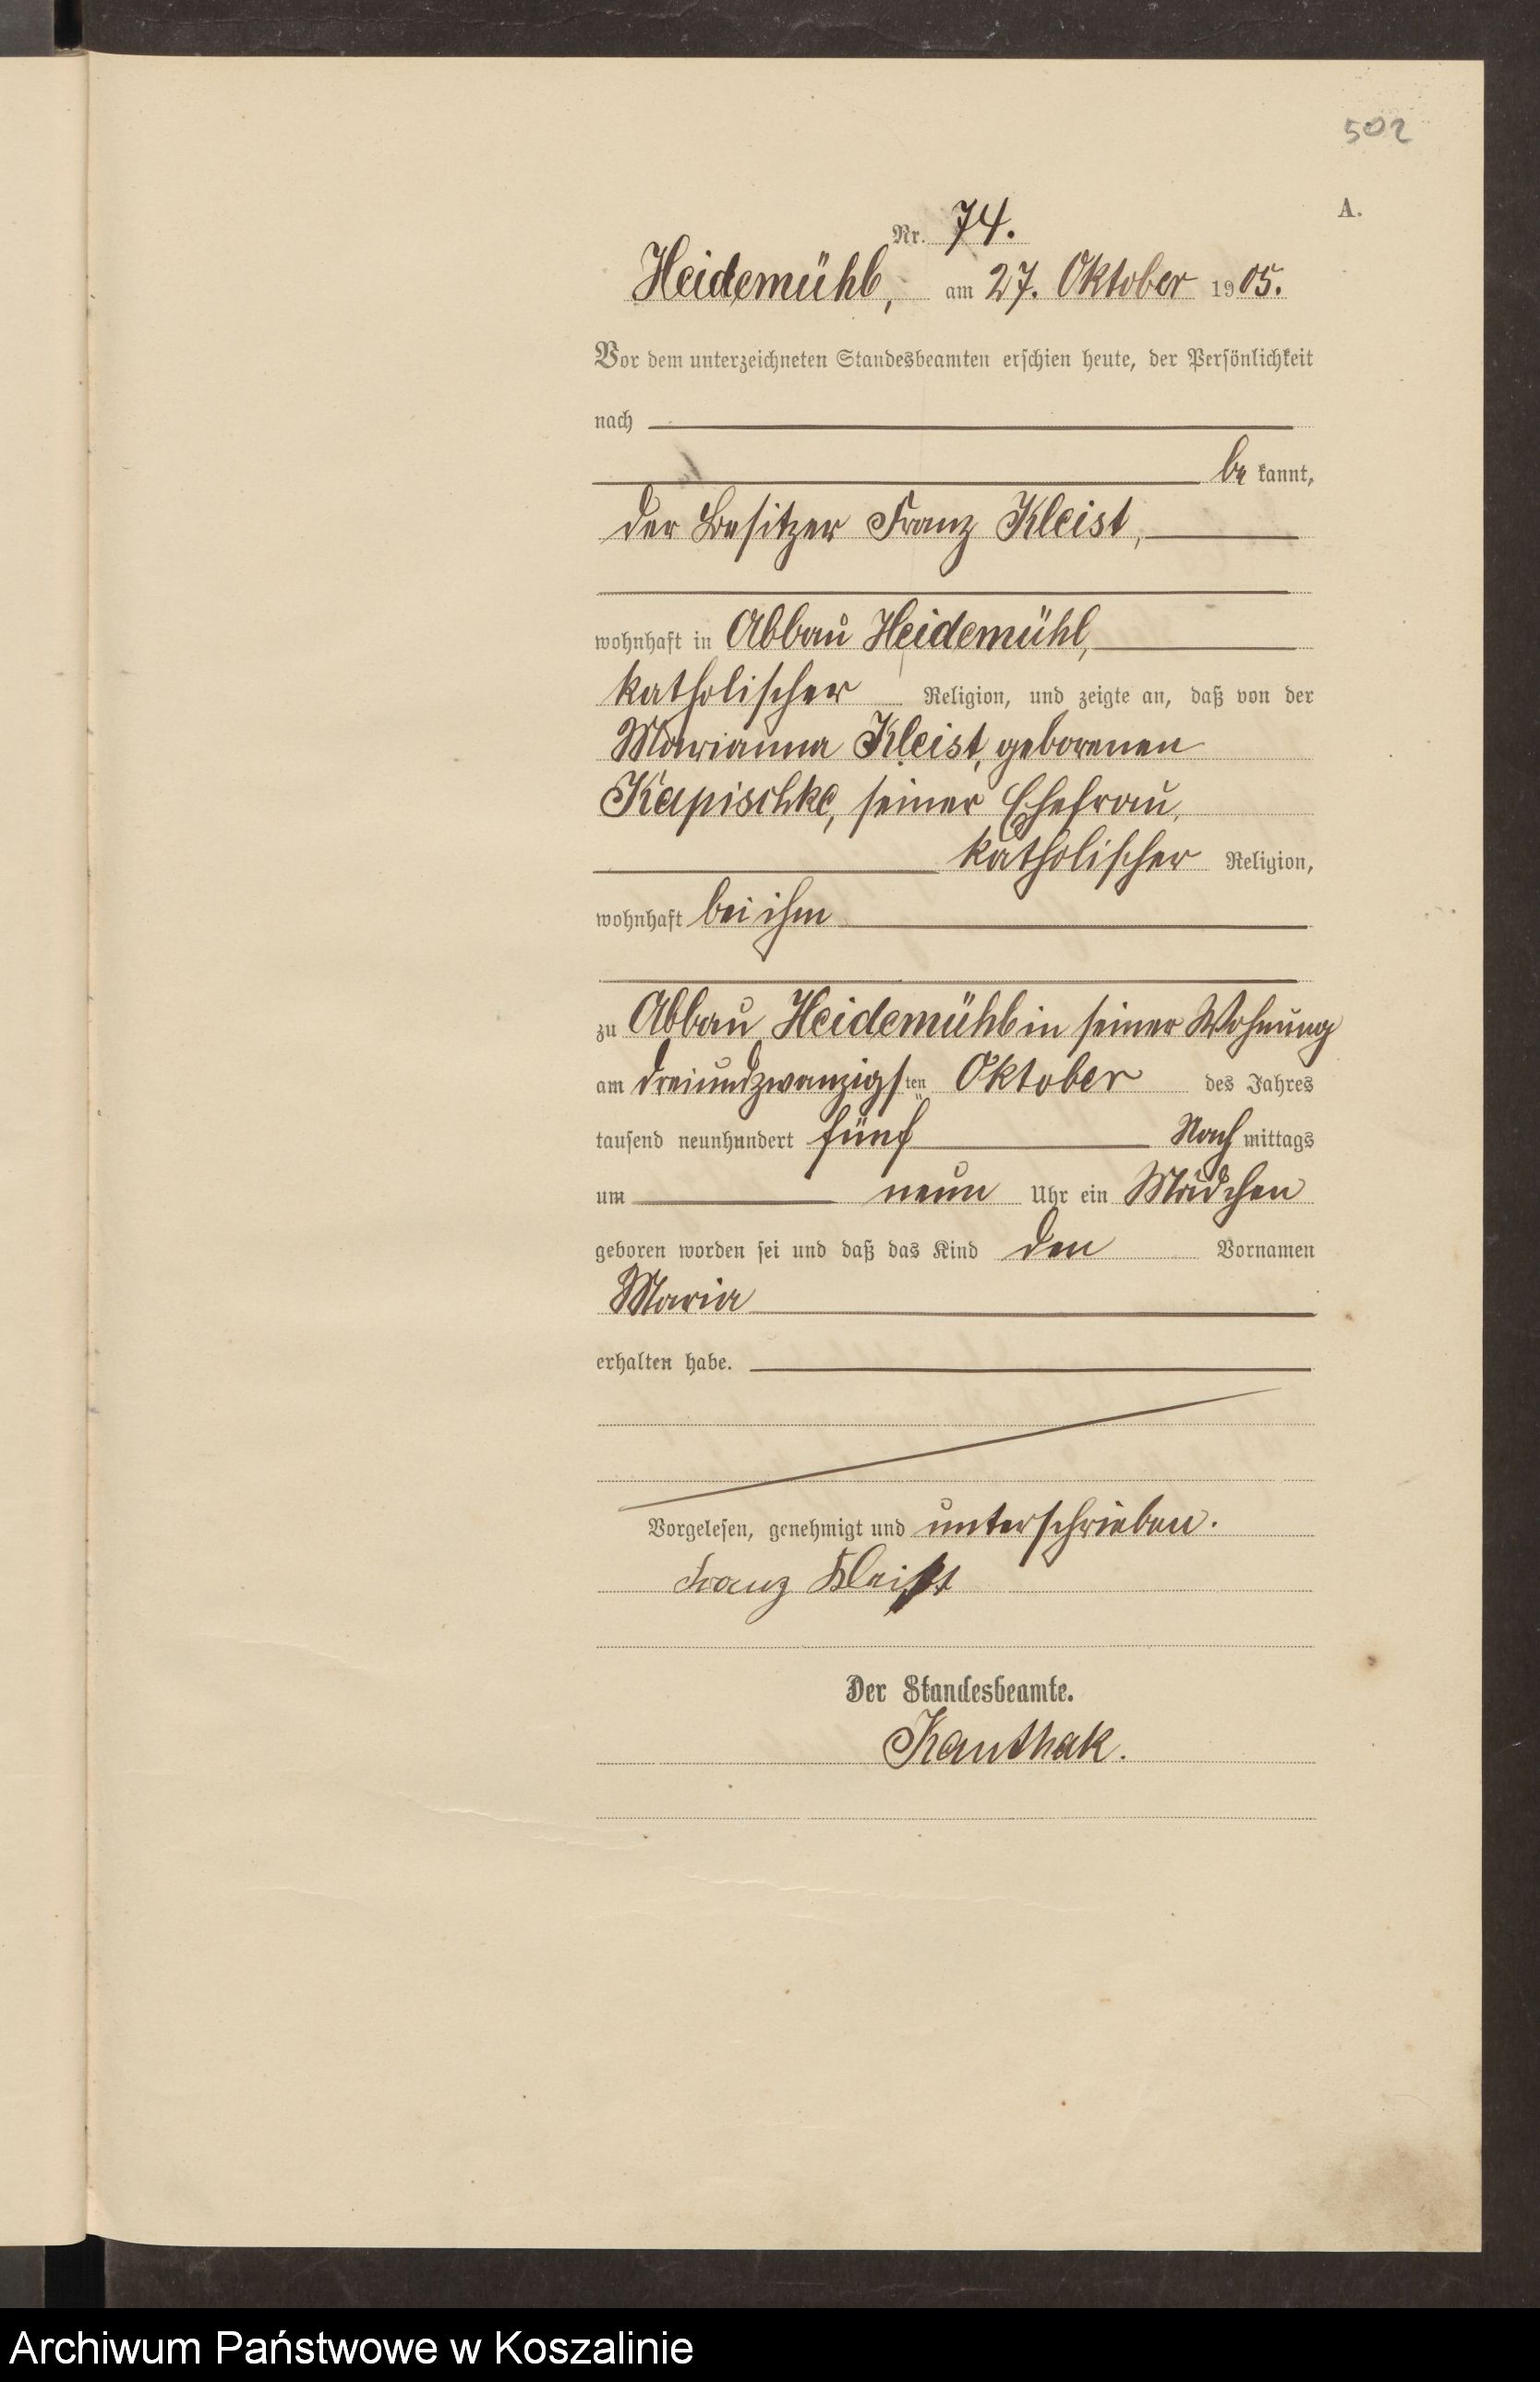 502
A.
Nr. 74.
Heidemühl, am 27. Oktober 1905.
Vor dem unterzeichneten Standesbeamten erschien heute, der Persönlichkeit
nach
be kannt,
der Besitzer Franz Kleist,
wohnhaft in Abbau Heidemühl,
katholischer Religion, und zeigte an, daß von der
Marianna Kleist, geborenen
Kapischke, seiner Ehefrau,
katholischer Religion,
wohnhaft bei ihm
zu Abbau Heidemühl in seiner Wohnung
am dreiundzwanzigsten Oktober des Jahres
tausend neunhundert fünf Nach mittags
um neun Uhr ein Mädchen
geboren worden sei und daß das Kind den Vornamen
Maria
erhalten habe.
Vorgelesen, genehmigt und unterschrieben.
Franz Kleist
Der Standesbeamte.
Kanthak.
Archiwum Państwowe w Koszalinie